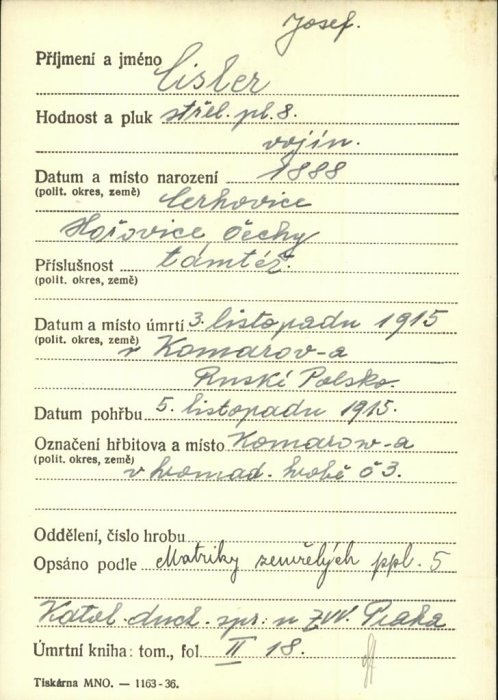 Josef.
Příjmení a jméno Cisler
Hodnost a pluk střel. pl. 8.
vojín.
Datum a místo narození 1888
(polit. okres, země) Cerhovice
Hořovice Čechy
Příslušnost tamtéž.
(polit. okres, země)
Datum a místo úmrtí 3. listopadu 1915
(polit. okres, země) v Komarov-a
Ruské Polsko.
Datum pohřbu 5. listopadu 1915.
Označení hřbitova a místo Komarow-a
(polit. okres, země) v hromad. hrobě č 3.
Oddělení, číslo hrobu
Opsáno podle Matriky zemřelých ppl. 5
Katol. duch. spr. u ZVV. Praha
Úmrtní kniha: tom., fol. II 18.
Tiskárna MNO. — 1163-36.